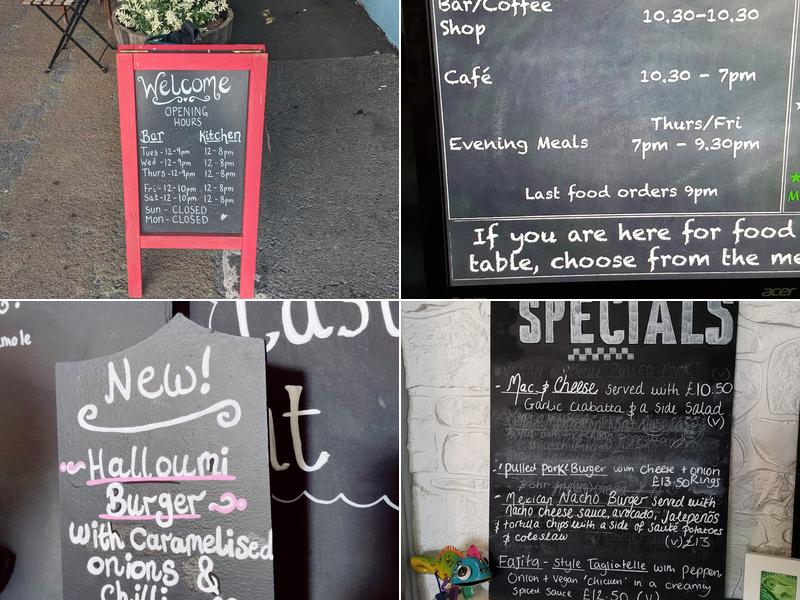 Welcome
OPENING
HOURS
Bar Kitchen
Tues-12-9pm 12-8pm
Wed -12-9pm 12-8pm
Thurs-12-9pm 12-8pm
Fri-12-10pm 12-8pm
Sat-12-10pm 12-8pm
Sun - CLOSED
Mon - CLOSED
Bar/Coffee 10.30-10.30
Shop
Café 10.30 - 7pm
Thurs/Fri
Evening Meals 7pm - 9.30pm
Last food orders 9pm
If you are here for food
table, choose from the me
acer
New!
Halloumi
Burger
with Caramelised
onions &
Chilli
SPECIALS
- Mac & Cheese served with £10.50
Garlic Ciabatta & a side Salad
(v)
'Pulled Pork' Burger with cheese + onion
£13.50 Rings
- Mexican Nacho Burger served with
Nacho cheese sauce, avocado, jalepeños
& tortilla chips with a side of sauté potatoes
& coleslaw (v) £13
Fajita - style Tagliatelle with pepper,
Onion + Vegan 'chicken' in a creamy
spiced sauce £12.50 (v)